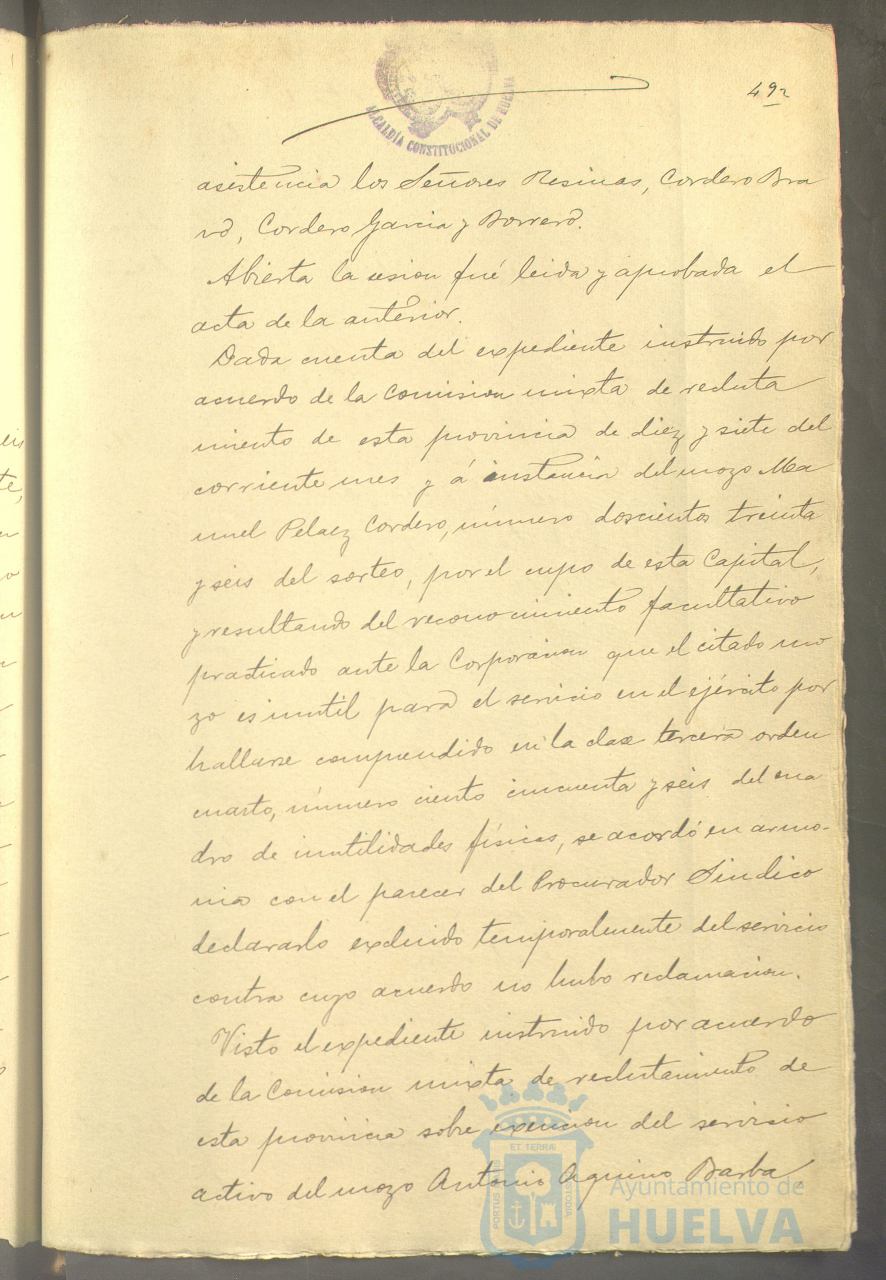 49
ALCALDÍA CONSTITUCIONAL DE HUELVA
asistencia los Señores Resinas, Cordero Bra
vo, Cordero Garcia y Borrero.
Abierta la sesion fué leida y aprobada el
acta de la anterior.
Dada cuenta del expediente instruido por
acuerdo de la Comision mixta de recluta
miento de esta provincia de diez y siete del
corriente mes y á instancia del mozo Ma
nuel Pelaez Cordero, número doscientos treinta
y seis del sorteo, por el cupo de esta Capital,
y resultando del reconocimiento facultativo
practicado ante la Corporacion que el citado mo
zo es inutil para el servicio en el ejército por
hallarse comprendido en la clase tercera orden
cuarto, número ciento cincuenta y seis del cua
dro de inutilidades físicas, se acordó en armo-
nia con el parecer del Procurador Sindico
declararlo excluido temporalmente del servicio
contra cuyo acuerdo no hubo reclamacion.
Visto el expediente instruido por acuerdo
de la Comision mixta de reclutamiento de
esta provincia sobre exencion del servicio
activo del mozo Antonio Aquino Barba,
PORTUS ET TERRAE CUSTODIA
Ayuntamiento de
HUELVA